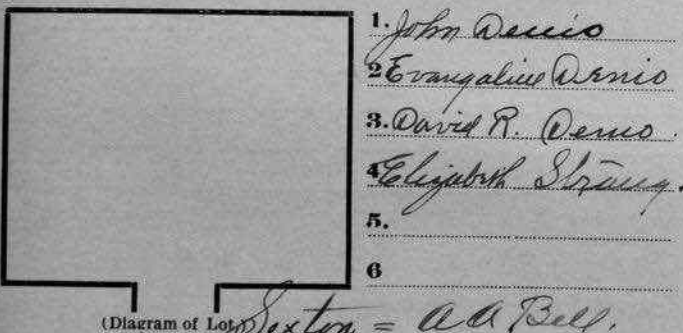 1. John Denio
2 Evangaline Denio
3. David R. Denio.
4 Elizabeth Strong.
5.
6
(Diagram of Lot.) Sexton = A A Bell.